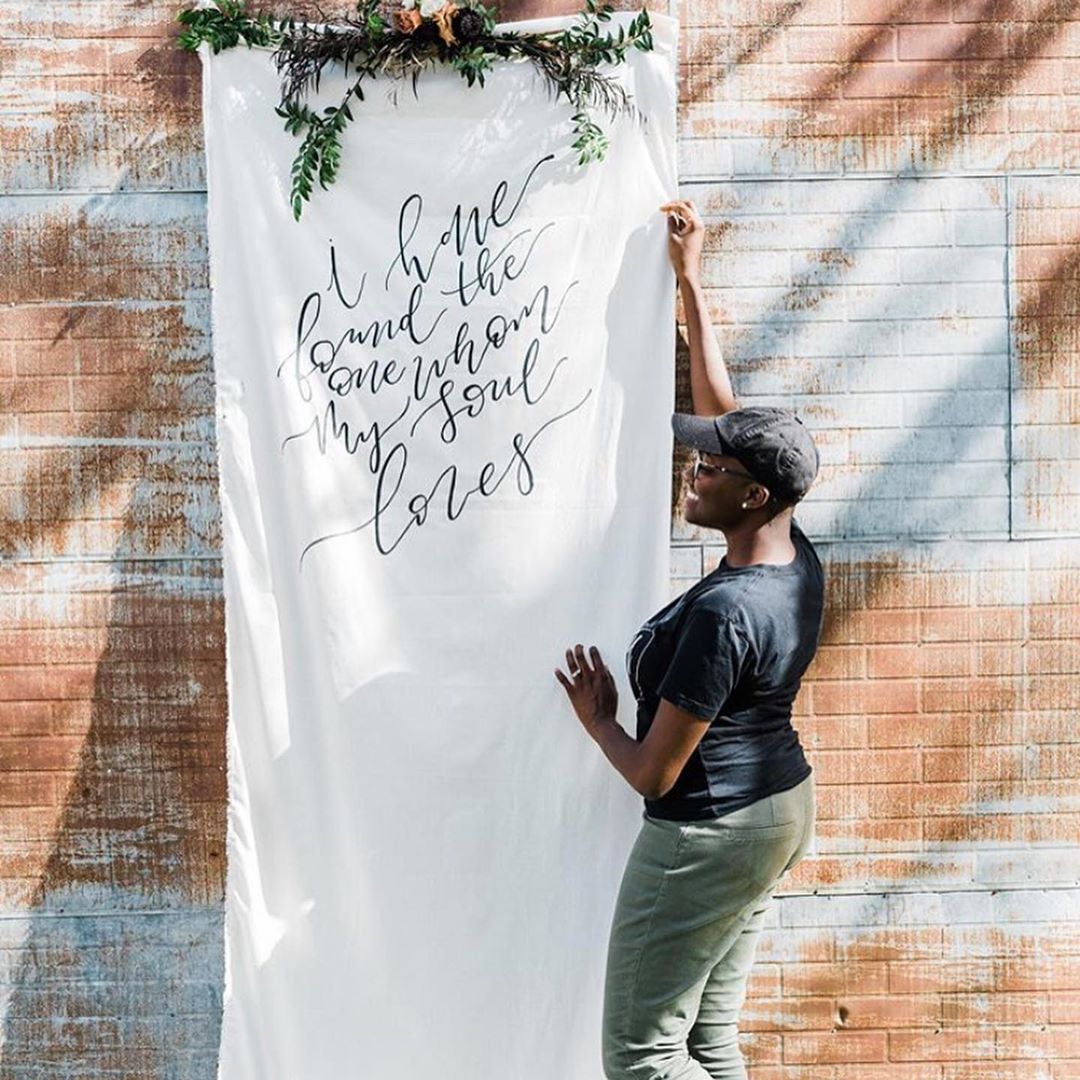 i have
found the
one whom
my soul
loves